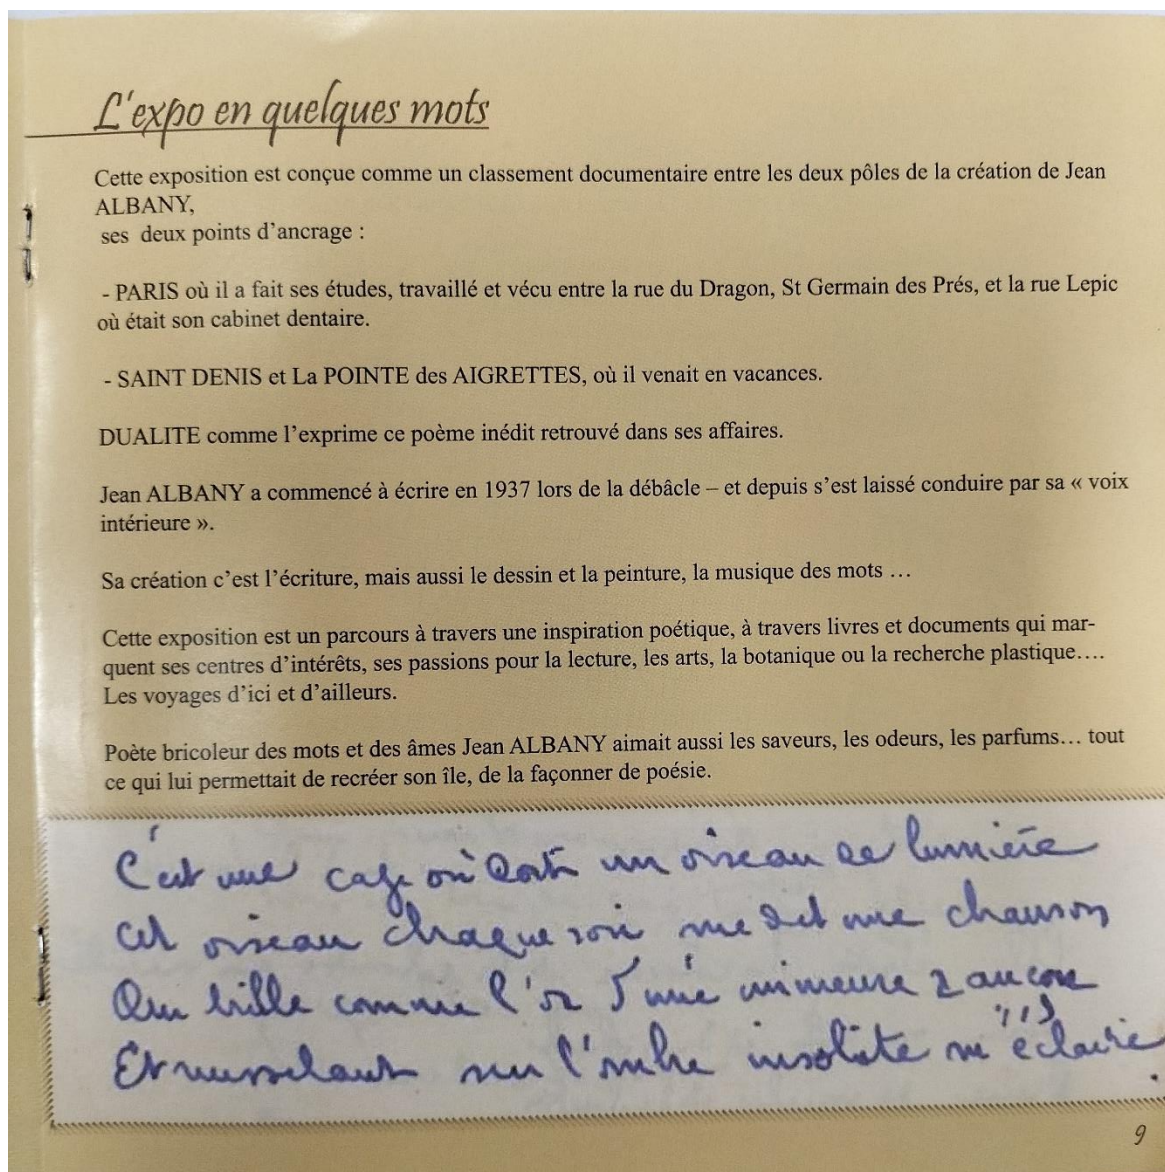 L'expo en quelques mots
Cette exposition est conçue comme un classement documentaire entre les deux pôles de la création de Jean
ALBANY,
ses deux points d'ancrage :
- PARIS où il a fait ses études, travaillé et vécu entre la rue du Dragon, St Germain des Prés, et la rue Lepic
où était son cabinet dentaire.
- SAINT DENIS et La POINTE des AIGRETTES, où il venait en vacances.
DUALITE comme l'exprime ce poème inédit retrouvé dans ses affaires.
Jean ALBANY a commencé à écrire en 1937 lors de la débâcle – et depuis s'est laissé conduire par sa « voix
intérieure ».
Sa création c'est l'écriture, mais aussi le dessin et la peinture, la musique des mots …
Cette exposition est un parcours à travers une inspiration poétique, à travers livres et documents qui mar-
quent ses centres d'intérêts, ses passions pour la lecture, les arts, la botanique ou la recherche plastique….
Les voyages d'ici et d'ailleurs.
Poète bricoleur des mots et des âmes Jean ALBANY aimait aussi les saveurs, les odeurs, les parfums… tout
ce qui lui permettait de recréer son île, de la façonner de poésie.
C'est une cage où dort un oiseau de lumière
Cet oiseau chaque soir me dit une chanson
Qui brille comme l'or d'une
Et ruisselant sur l'ombre insolite m'éclaire
9